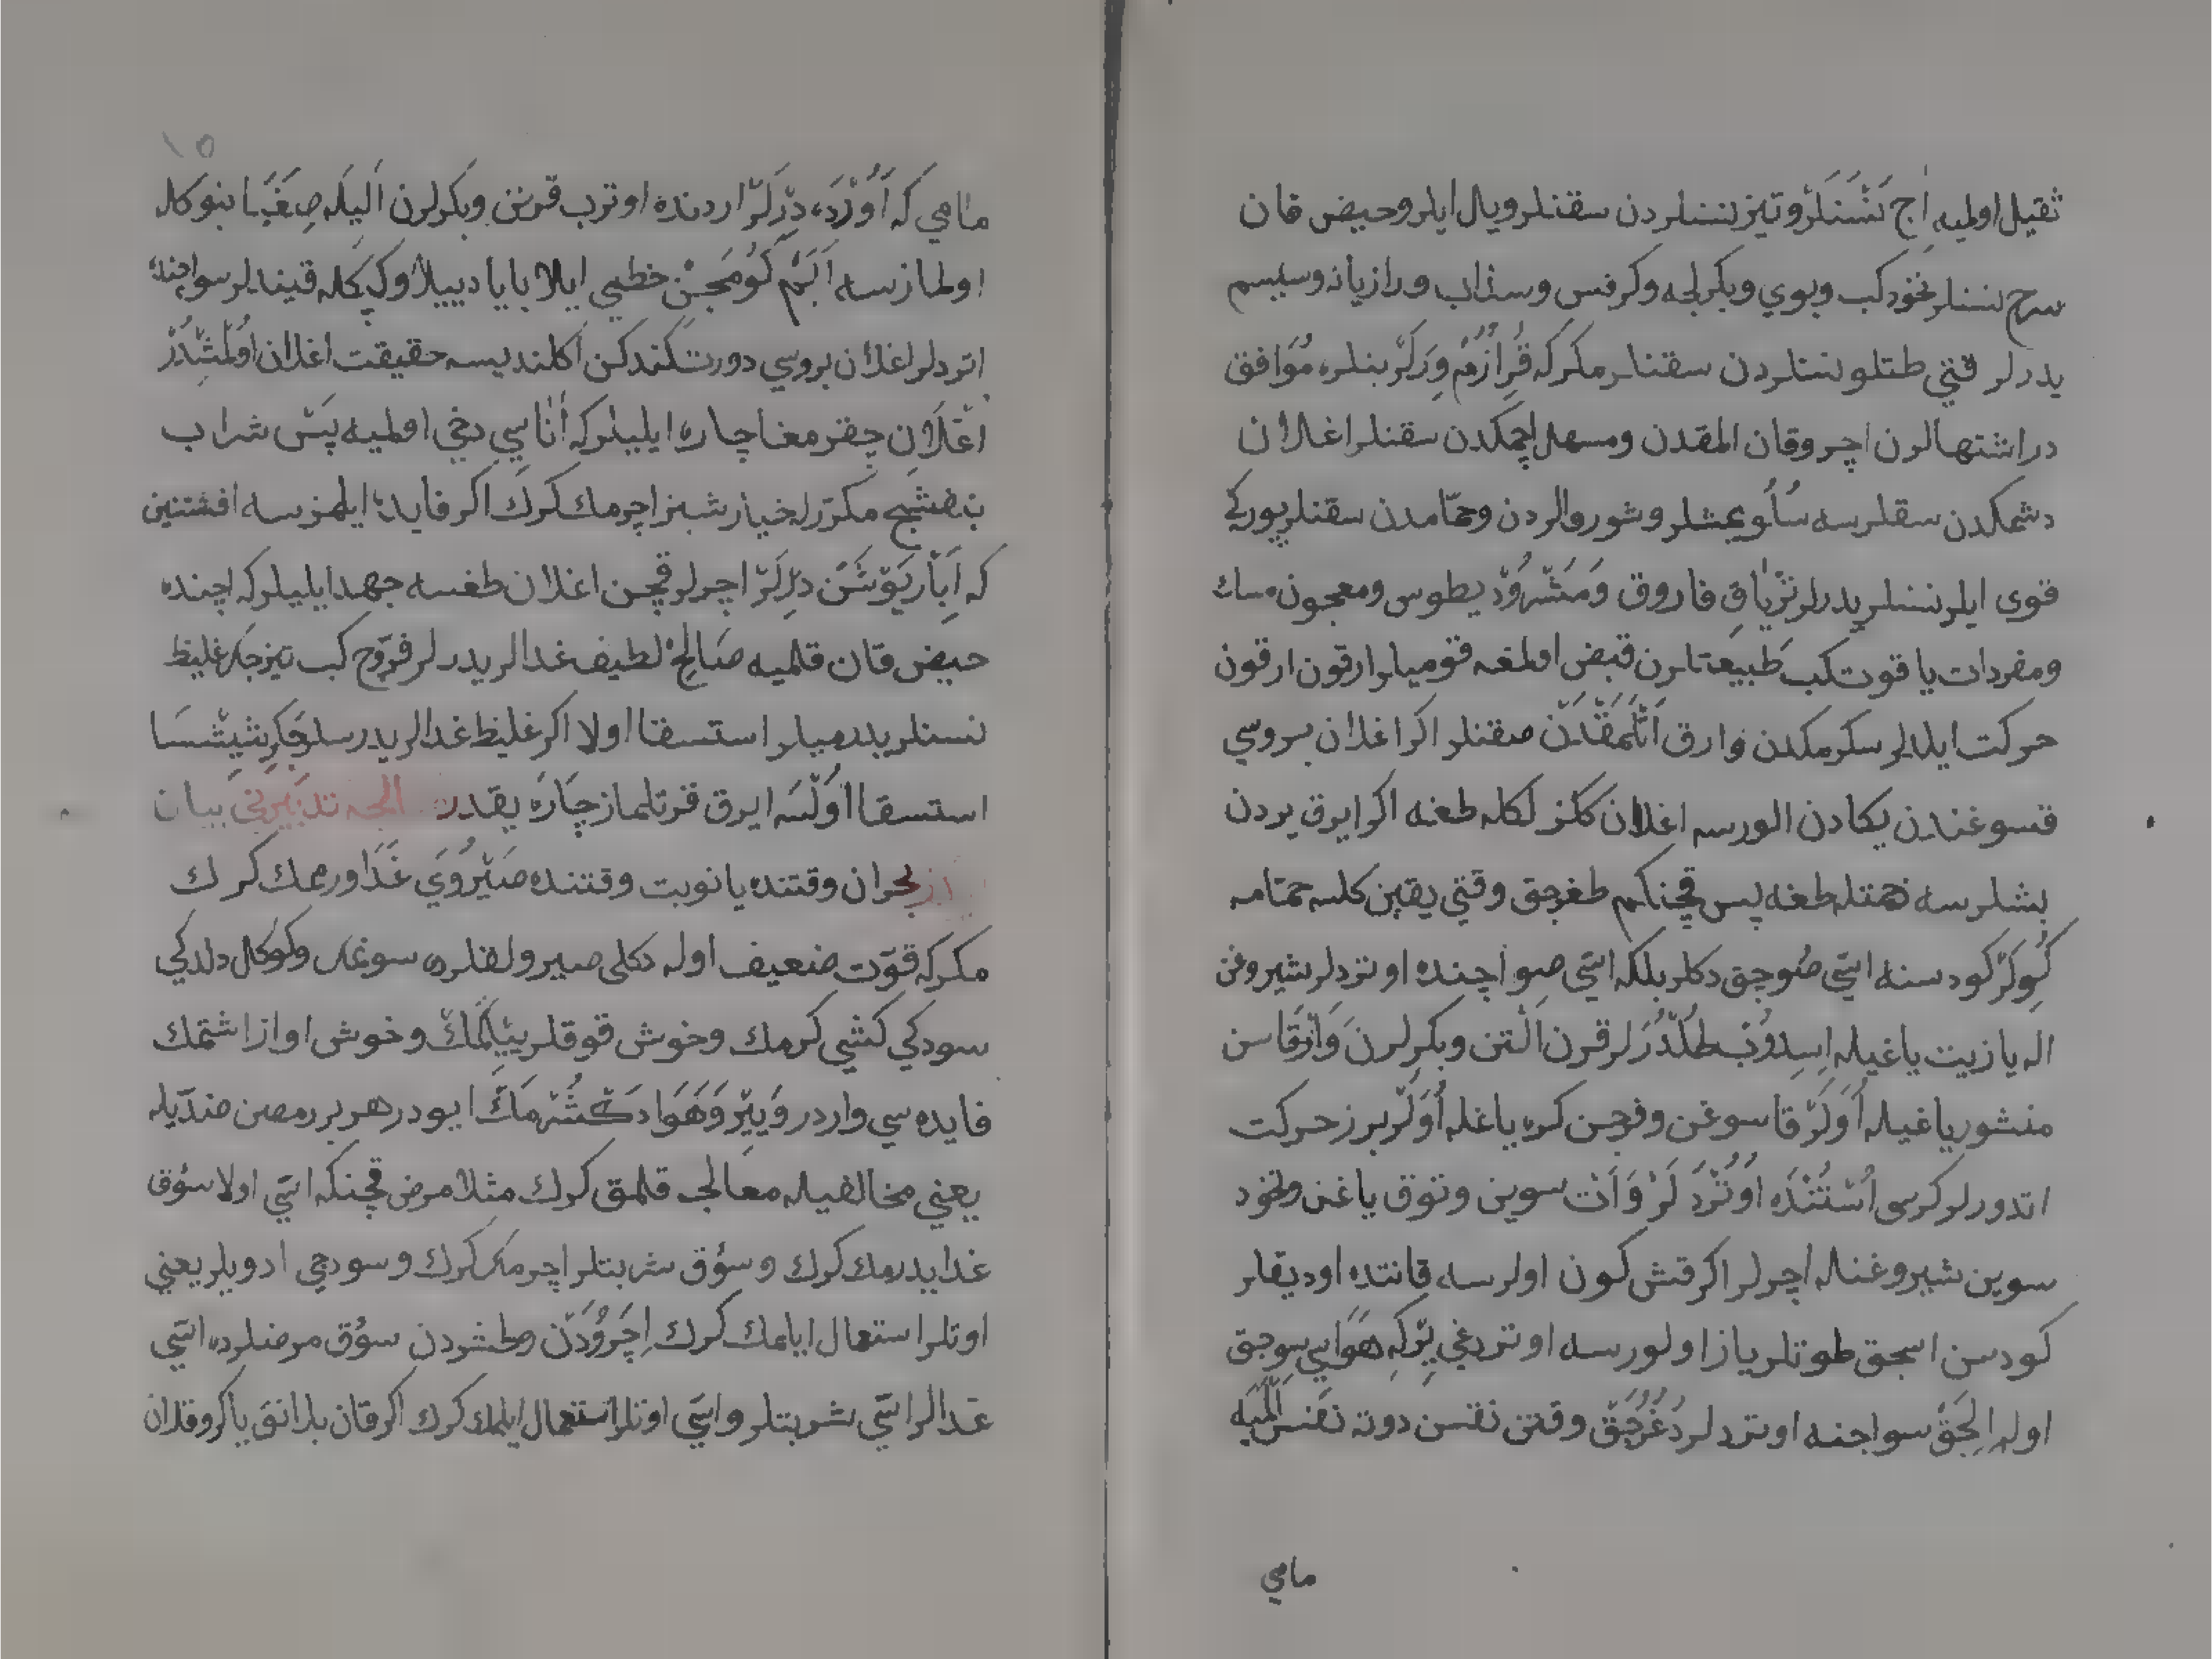 ثقيل اولميه اج نَسْنَلَرْ و تيز نسنلردن سقنلر و يال ايلر و حيض قان
سرح نسنلر نخود كب و بوي و بكرلجه و كرفس و سذاب و رازيانه و سيسم
يدرلر قتي طتلو نسنلردن سقنلر مكر كه قُرُ اُزُمْ وِرَلَرْ بنلره مُوَافق
در اشتهالرن اچر و قان المقدن و مسهل اچمكدن سقنلر اغلان
دشمكدن سقلرسه سُلُو يمشلر و شوروالردن و حمّامدن سقنلر يوركي
قوى ايلر نسنلر يدرلر تِرْيَاقِ فاروق وَمَثْرُودِيطوس و معجون مسك
و مفردات ياقوت كب طَبيعَتلرن قبض اولمغه قوميلر ارقون ارقون
حركت ايلدلر سكرمكدن و ارق اَتْلَمَقْدَنْ صقنلر اكر اغلان بروسي
قسوغندن يكادن الورسه اغلان كلز لكله طغه اكر ايرق يردن
بشلرسه زحمتله طغه پس قچنكم طغرجق وقتي يقين كلسه حمّامه
كُورَرْ كودسنه اسّي صُوجق دكلر بلكه اسّي صو اچنده اوتردلر شيروغن
اله يا زيت ياغيله اِسِدُوبْ طُلْدُرَلر قرن التن و بكرلرن وَاَرْقَاسن
منشور ياغيله اُوَلَرْ قاسوغن و فرجن كره ياغله اُوَلَرْ برز حركت
اتدورلر كرسى اُسْتُنْدَه اُوتُرْدَلَرْ وَ اَتْ سوين و توق ياغن و نخود
سوين شيروغنله اچرلر اكر قش كون اولرسه قاتنده اود يقلر
كودسن اسجق طوتلر ياز اولورسه اوتردغي يِرْكِه هَوَاسي سوجق
اوله اِلِجَقْ سو اجنه اوتردلر دُغُرُجَقْ وقتن نفسن دوته نَفَس اَلْمَيَه
مامي
١٥
مامي كه اَوُرْدَه دِرْلَرْ اردنده اوترب قرنن و بكرلرن اَليلَه صِغَيَا بنوكله
اولمازسه اَبَمْ كُومَجِنْ خطمي ايلا بابادييلا و كپكله قيندلر سو اچنده
اتردلر اغلان بروسي دورت كندكن اكلنديسه حقيقت اغلان اُولْمِشْدُرْ
اُغْلَان چقرمغا چاره ايليلر كه اَنَاسي دخي اولميه پَسْ شراب
بنفشج مكرّرله خيارشبنز اچرمك كرك اكر فايده ايلمزسه افسنتين
كه اَبَاز يَوْشَنْ دِرْلَرْ اچرلر قچن اغلان طغسه جهد ايليلر كه اچنده
حيض قان قلميه صَالِحْ لطيف غدالر يدرلر فرّوج كب تيز جكر غليظ
نسنلر يدرميلر استسقا اولا اكر غليظ غدالر يدرسلر جَكَر شِيشْسَا
استسقا اُولْسَه ايرق قرتلماز چَارَه يقدر الجه تدبيرني بيان
بحران وقتنده يا نوبت وقتنده صَيْرُويَ غَدَا ورممك كرك
مكر كه قوّت ضعيف اوله دكلى صيرولقلره سوغل و كوكل دلدكي
سودكي كشي كرمك و خوش قوقلر ييلَمَكْ و خوش اواز اشتمك
فايده سي واردر وَ يِيرْ وَ هَوَا دَكْشُرْمَكْ ايودر هر بر رمصن ضدّيله
يعني مخالفيله معالجه قلمق كرك مثلا مرض قچنكه اسّي اولا سؤق
غدا يدرمك كرك و سؤق شربتلر اچرمك كرك و سودجي ادويلر يعني
اوتلر استعمال ايلمك كرك اِچَرُودَنْ و طشردن سؤق مرضلرده اسّي
غدالر اسّي شربتلر و اسّي اوتلر استعمال ايلمك كرك اكر قان بلانق يا كروقلان